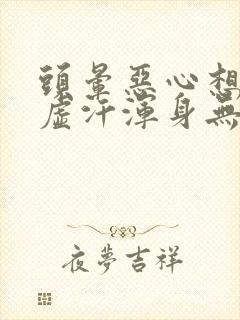 頭暈惡心想
虛汗渾身無
夜夢吉祥